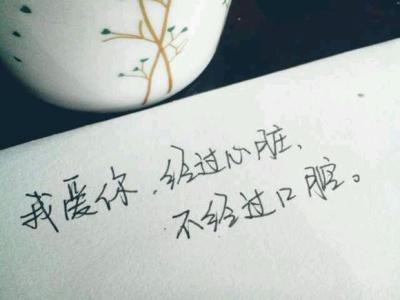 我爱你，经过心脏，
不经过口腔。